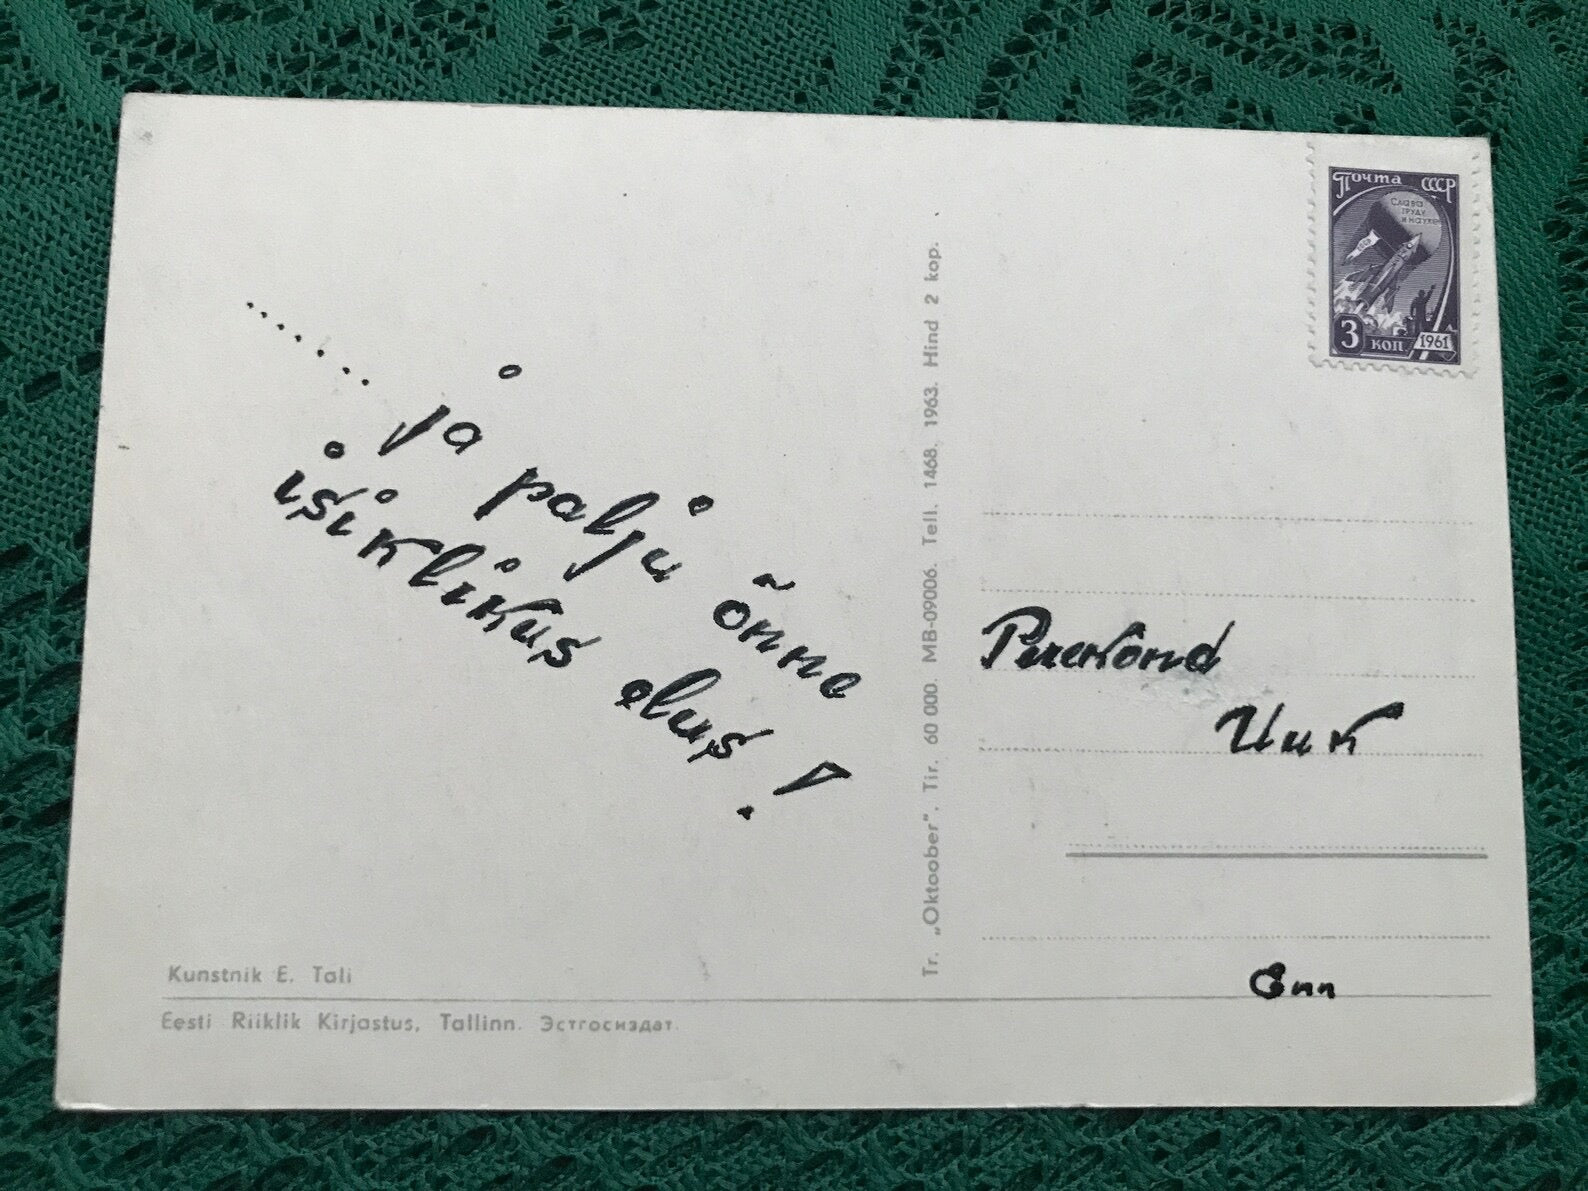 ....... ja palju õnne
isiklikus elus!
Kunstnik E. Tali
Eesti Riiklik Kirjastus, Tallinn. Эстгосиздат.
Tr. „Oktoober". Tir. 60 000. MB-09006. Tell. 1468. 1963. Hind 2 kop.
Почта СССР
Слава
труду
и науке
3 коп. 1961
Perekond
Uuk
Enn